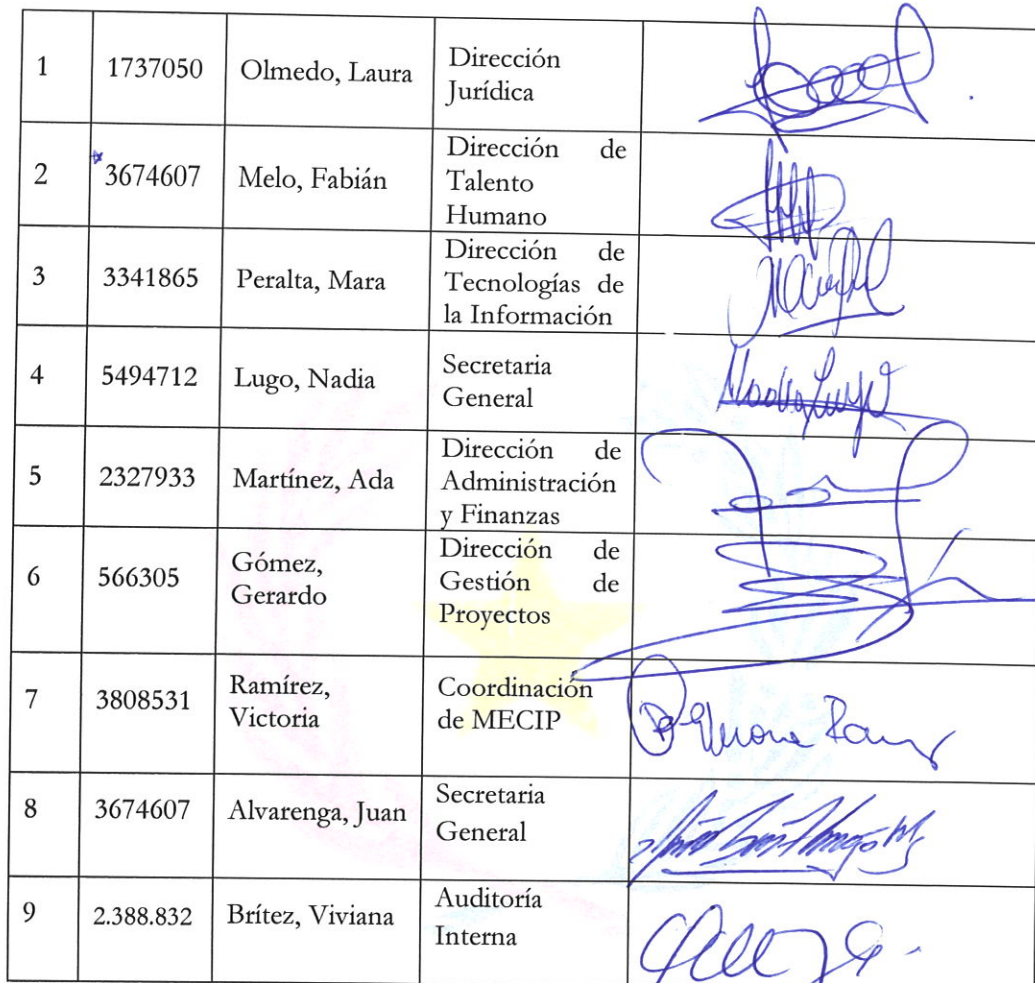 1 1737050 Olmedo, Laura Dirección
Jurídica
2 3674607 Melo, Fabián Dirección de
Talento
Humano
3 3341865 Peralta, Mara Dirección de
Tecnologías de
la Información
4 5494712 Lugo, Nadia Secretaria
General
Nadia Lugo
5 2327933 Martínez, Ada Dirección de
Administración
y Finanzas
6 566305 Gómez,
Gerardo
Dirección de
Gestión de
Proyectos
7 3808531 Ramírez,
Victoria
Coordinación
de MECIP
8 3674607 Alvarenga, Juan Secretaria
General
9 2.388.832 Brítez, Viviana Auditoría
Interna